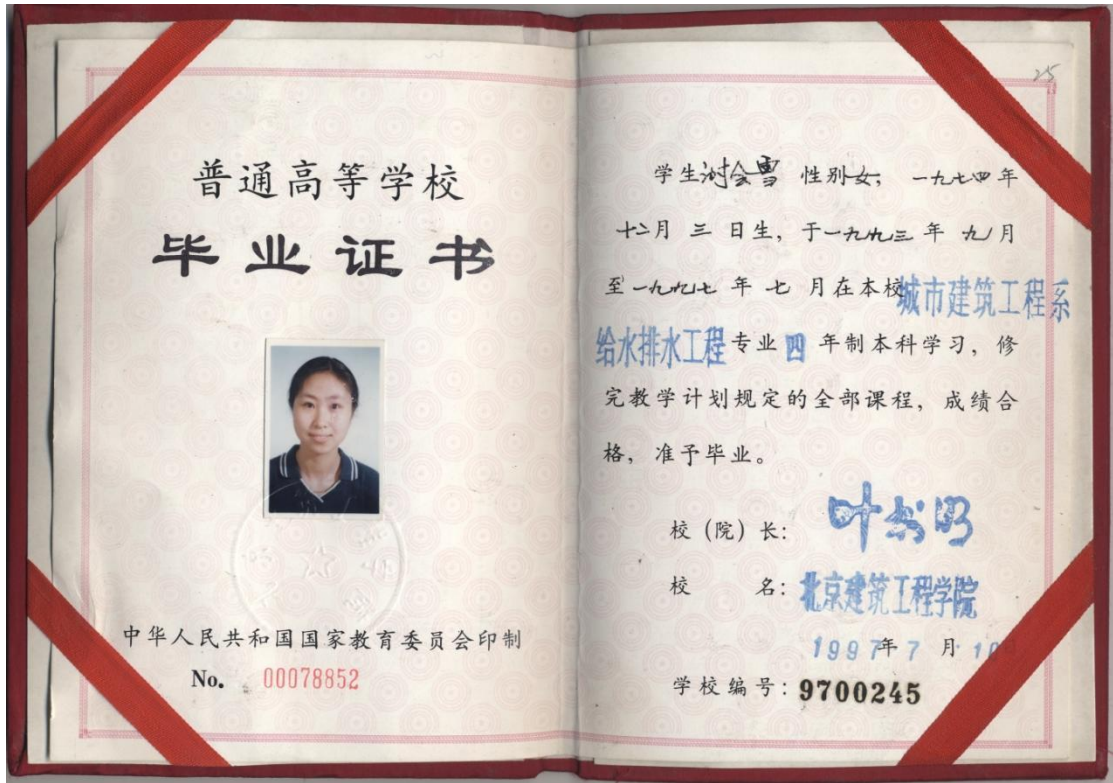 普通高等学校
毕业证书
中华人民共和国国家教育委员会印制
No. 00078852
25
学生 会雪 性别女，一九七四年
十二月 三 日生，于一九九三 年 九月
至一九九七 年 七 月在本校城市建筑工程系
给水排水工程专业 四 年制本科学习，修
完教学计划规定的全部课程，成绩合
格，准予毕业。
校（院）长：叶书明
校 名：北京建筑工程学院
1997年 7 月
学校编号：9700245